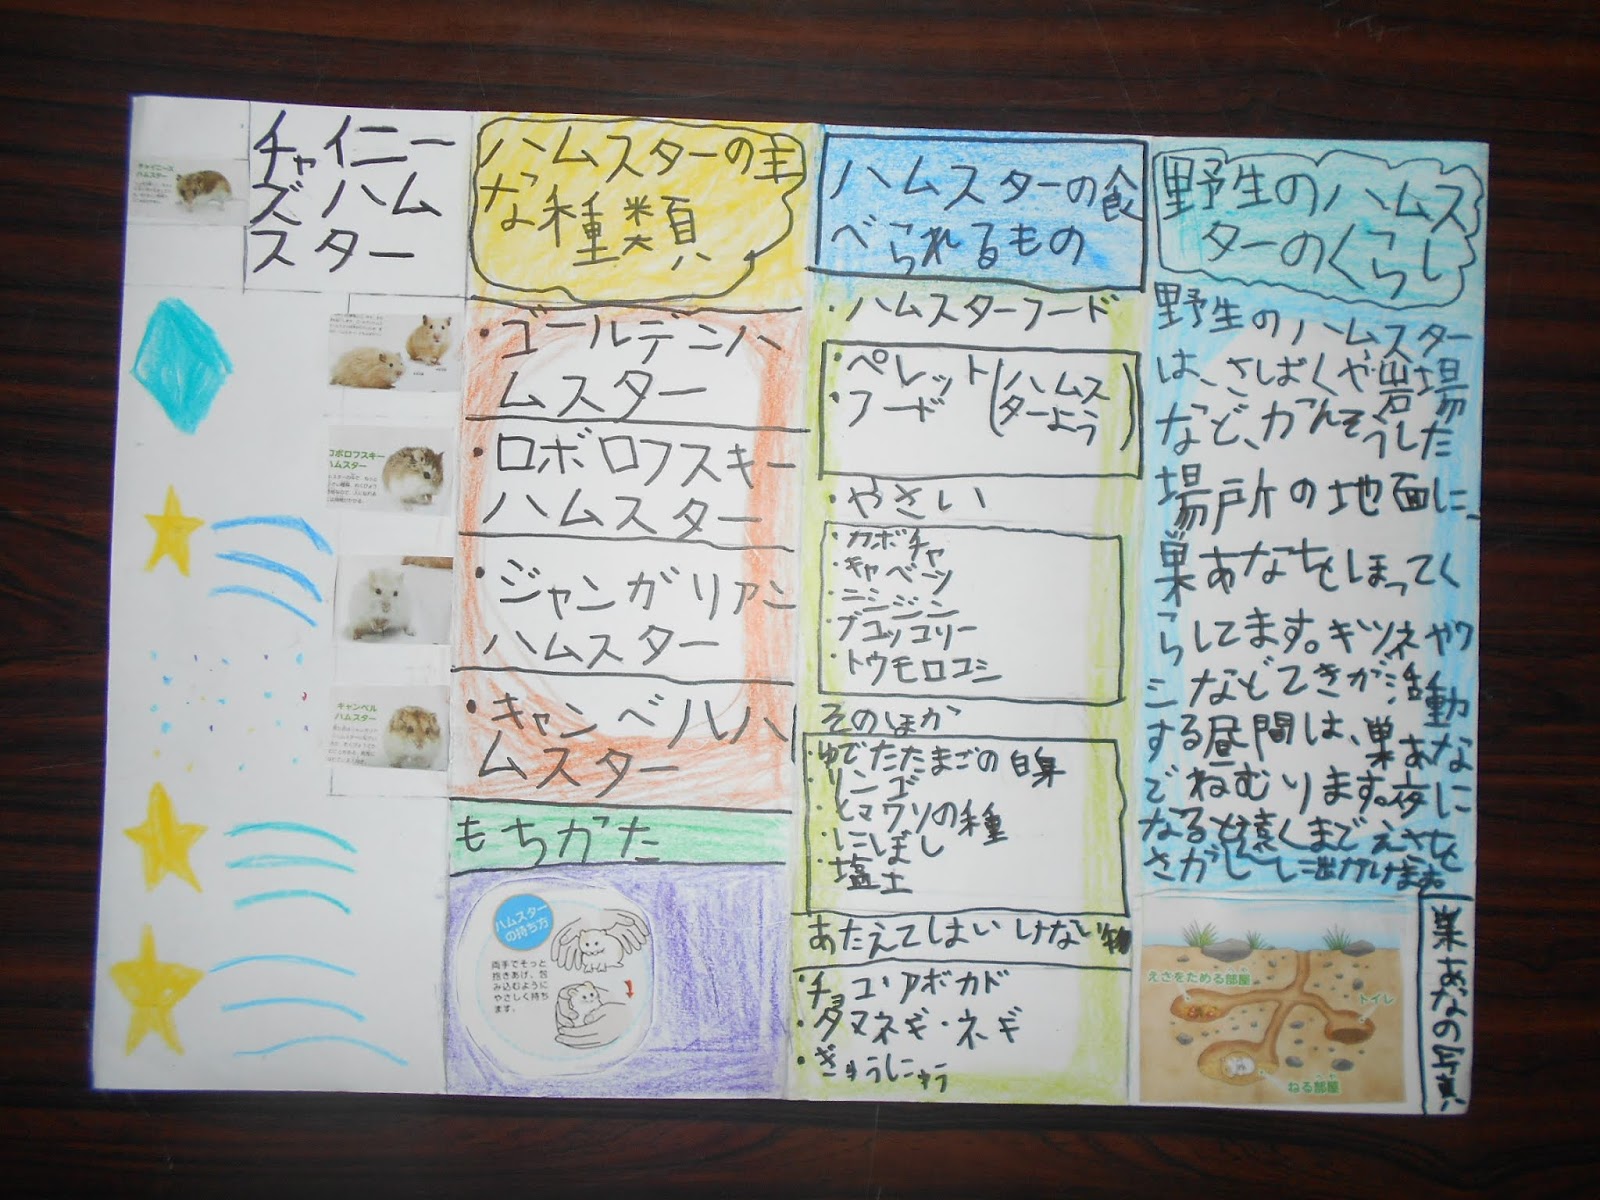 チャイニー
ズハム
スター
チャイニーズ
ハムスター
ロボロフスキー
ハムスター
キャンベル
ハムスター
ハムスターの主
な種類
・ゴールデンハ
ムスター
・ロボロフスキー
ハムスター
・ジャンガリアン
ハムスター
・キャンベルハ
ムスター
もちかた
ハムスター
の持ち方
両手でそっと
抱きあげ、包
み込むように
やさしく持ち
ます。
ハムスターの食
べられるもの
・ハムスターフード
・ペレット(ハムス
・フード ターよう)
・やさい
・カボチャ
・キャベツ
・ニンジン
・ブロッコリー
・トウモロコシ
そのほか
・ゆでたたまごの白身
・リンゴ
・ヒマワリの種
・にぼし
・塩土
あたえてはいけない物
・チョコ・アボカド
・タマネギ・ネギ
・ぎゅうにゅう
野生のハムス
ターのくらし
野生のハムスター
は、さばくや岩場
など、かんそうした
場所の地面に、
巣あなをほってく
らしてます。キツネやワ
シなどてきが活動
する昼間は、巣あな
でねむります。夜に
なると遠くまでえさを
さがしに出かけます。
えさをためる部屋
トイレ
ねる部屋
巣あなの写真